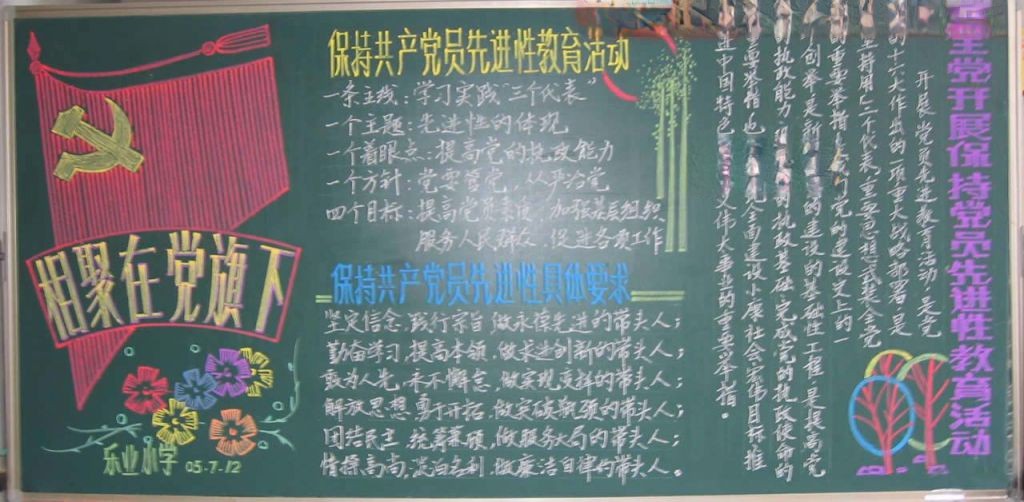 相聚在党旗下
乐业小学 05.7.12
保持共产党员先进性教育活动
一条主线：学习实践“三个代表”
一个主题：先进性的体现
一个着眼点：提高党的执政能力
一个方针：党要管党，从严治党
四个目标：提高党员素质，加强基层组织
服务人民群众，促进各项工作
保持共产党员先进性具体要求
坚定信念，践行宗旨，做永保先进的带头人；
勤奋学习，提高本领，做求进创新的带头人；
敢为人先，永不懈怠，做实现变样的带头人；
解放思想，勇于开拓，做突破瓶颈的带头人；
团结民主，统筹兼顾，做服务大局的带头人；
情操高尚，淡泊名利，做廉洁自律的带头人。
全党开展保持党员先进性教育活动
开展党员先进教育活动，是党
的十六大作出的一项重大战略部署，是
坚持用“三个代表”重要思想武装全党
的重要举措，我们党的建设史上的一
创举，是新的建设的基础性工程，是提高党
的执政能力，巩固执政基础，完成党的执政使命的
重要举措，也全面建设小康社会宏伟目标，推
进中国特色主义伟大事业的重要举措。